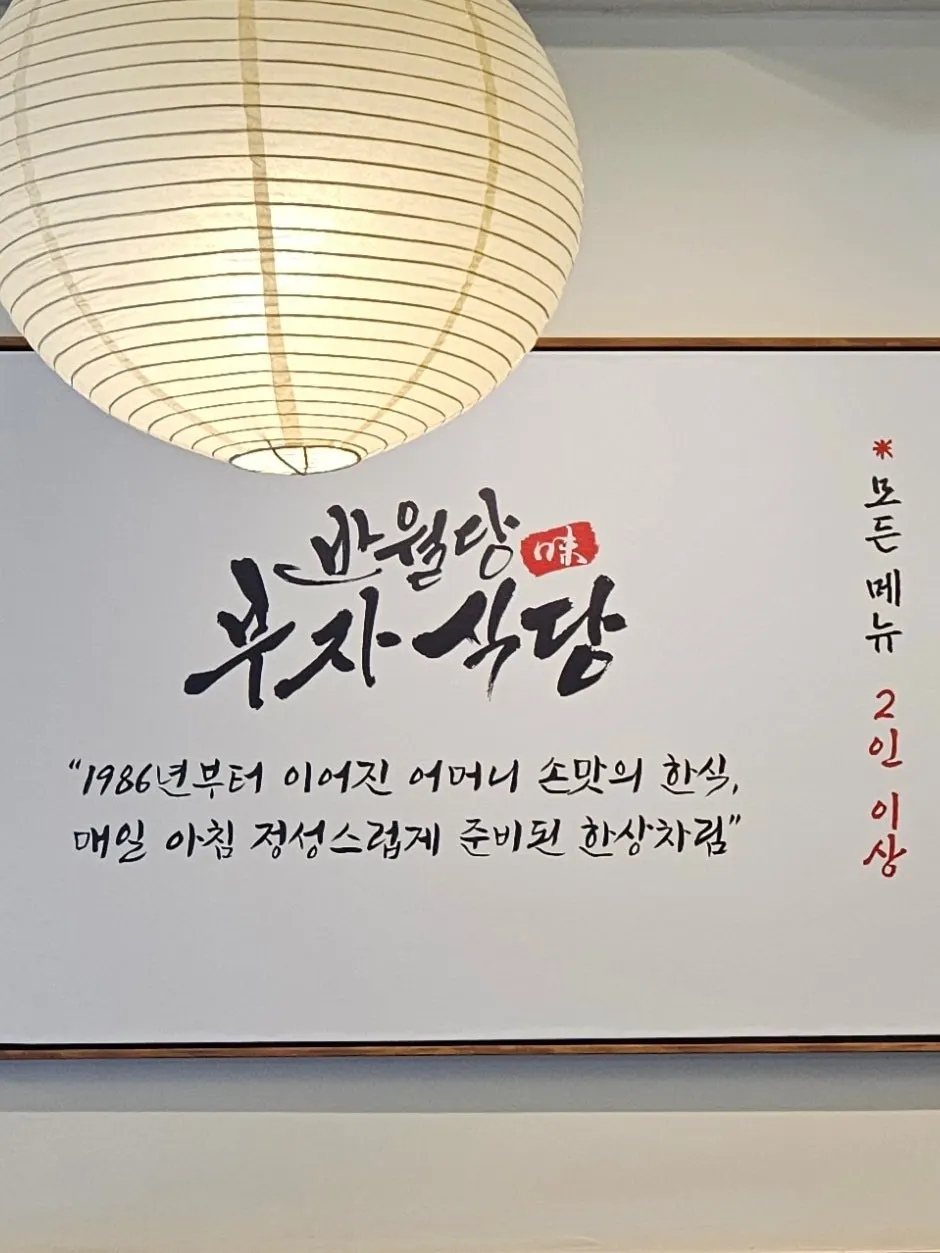 반월당
味
부자식당
"1986년부터 이어진 어머니 손맛의 한식,
매일 아침 정성스럽게 준비된 한상차림"
* 모든 메뉴 2인 이상